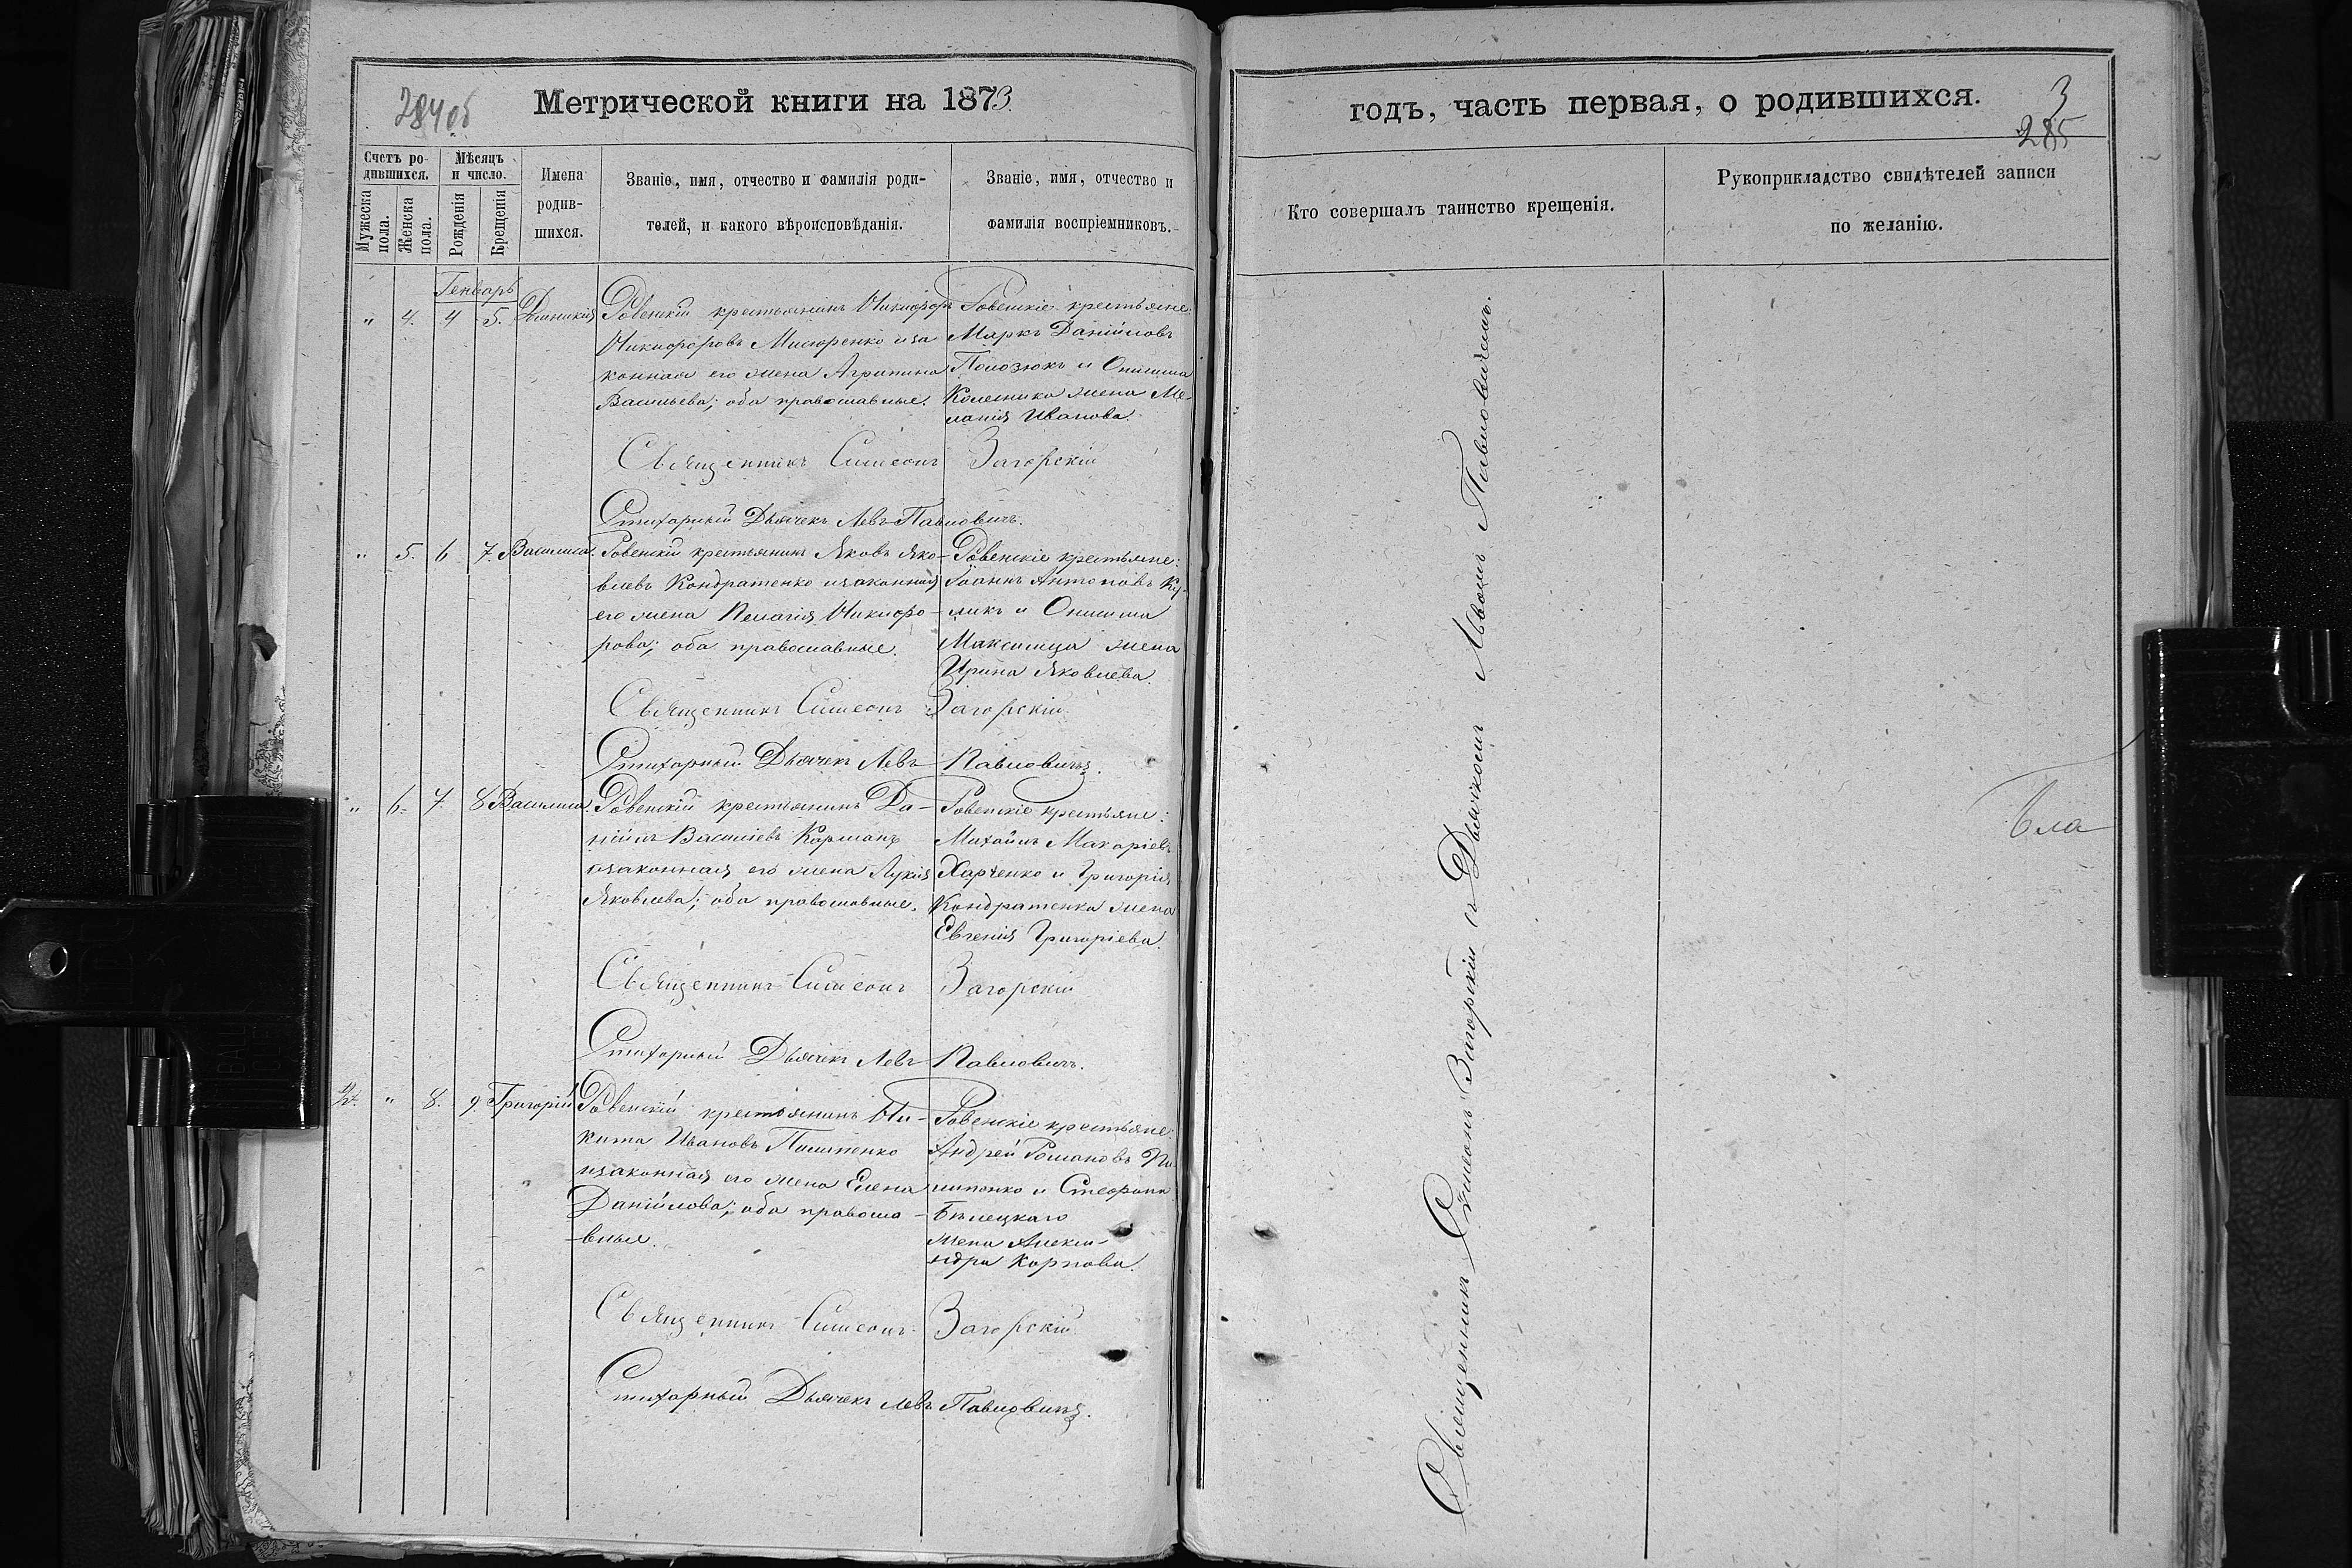 284 об
Метрической книги на 1873
Счетъ родившихся.
Мужеска пола.
Женска пола.
Мѣсяцъ и число.
Рожденія
Крещенія
Имена родившихся.
Званіе, имя, отчество и фамилія родителей, и какого вѣроисповѣданія.
Званіе, имя, отчество и фамилія воспріемниковъ.
Генварь
" 4. 4 5. Домникія
Ровенскій крестьянинъ Никифоръ
Никифоровъ Мисюренко и за
конная его жена Агрипина
Васильева; оба православные.
Ровенскіе крестьяне
Маркъ Даніиловъ
Полозюкъ и Онисима
Колесника жена Ме-
ланія Иванова.
Священникъ Симеонъ Загорскій
Стихарный Дьячекъ Левъ Павловичъ.
" 5. 6 7. Василиса.
Ровенскій крестьянинъ Яковъ Яко-
влевъ Кондратенко и законная
его жена Пелагія Никифо-
рова; оба православные.
Ровенскіе крестьяне:
Іоаннъ Антоновъ Ку-
ликъ и Онисима
Максимца жена
Ирина Яковлева.
Священникъ Симеонъ Загорскій
Стихарный Дьячекъ Левъ Павловичъ.
" 6. 7. 8 Василиса.
Ровенскій крестьянинъ Да-
ніилъ Василіевъ Корман
и законная его жена Лукія
Яковлева; оба православные.
Ровенскіе крестьяне:
Михаилъ Макаріевъ
Харченко и Григорія
Кондратенка жена
Евгенія Григоріева.
Священникъ Симеонъ Загорскій
Стихарный Дьячекъ Левъ Павловичъ.
2. " 8. 9. Григорій
Ровенскій крестьянинъ Ни-
кита Ивановъ Пилипенко
и законная его жена Елена
Даніилова; оба правосла-
вные.
Ровенскіе крестьяне:
Андрей Романовъ Пи-
липенко и Стефана
Бѣлецкаго
жена Алекса-
ндра Карпова.
Священникъ Симеонъ Загорскій
Стихарный Дьячекъ Левъ Павловичъ.
годъ, часть первая, о родившихся.
3
285
Кто совершалъ таинство крещенія.
Рукоприкладство свидѣтелей записи
по желанію.
Священникъ Симеонъ Загорскій съ Дьячкомъ Львомъ Павловичемъ.
Бла